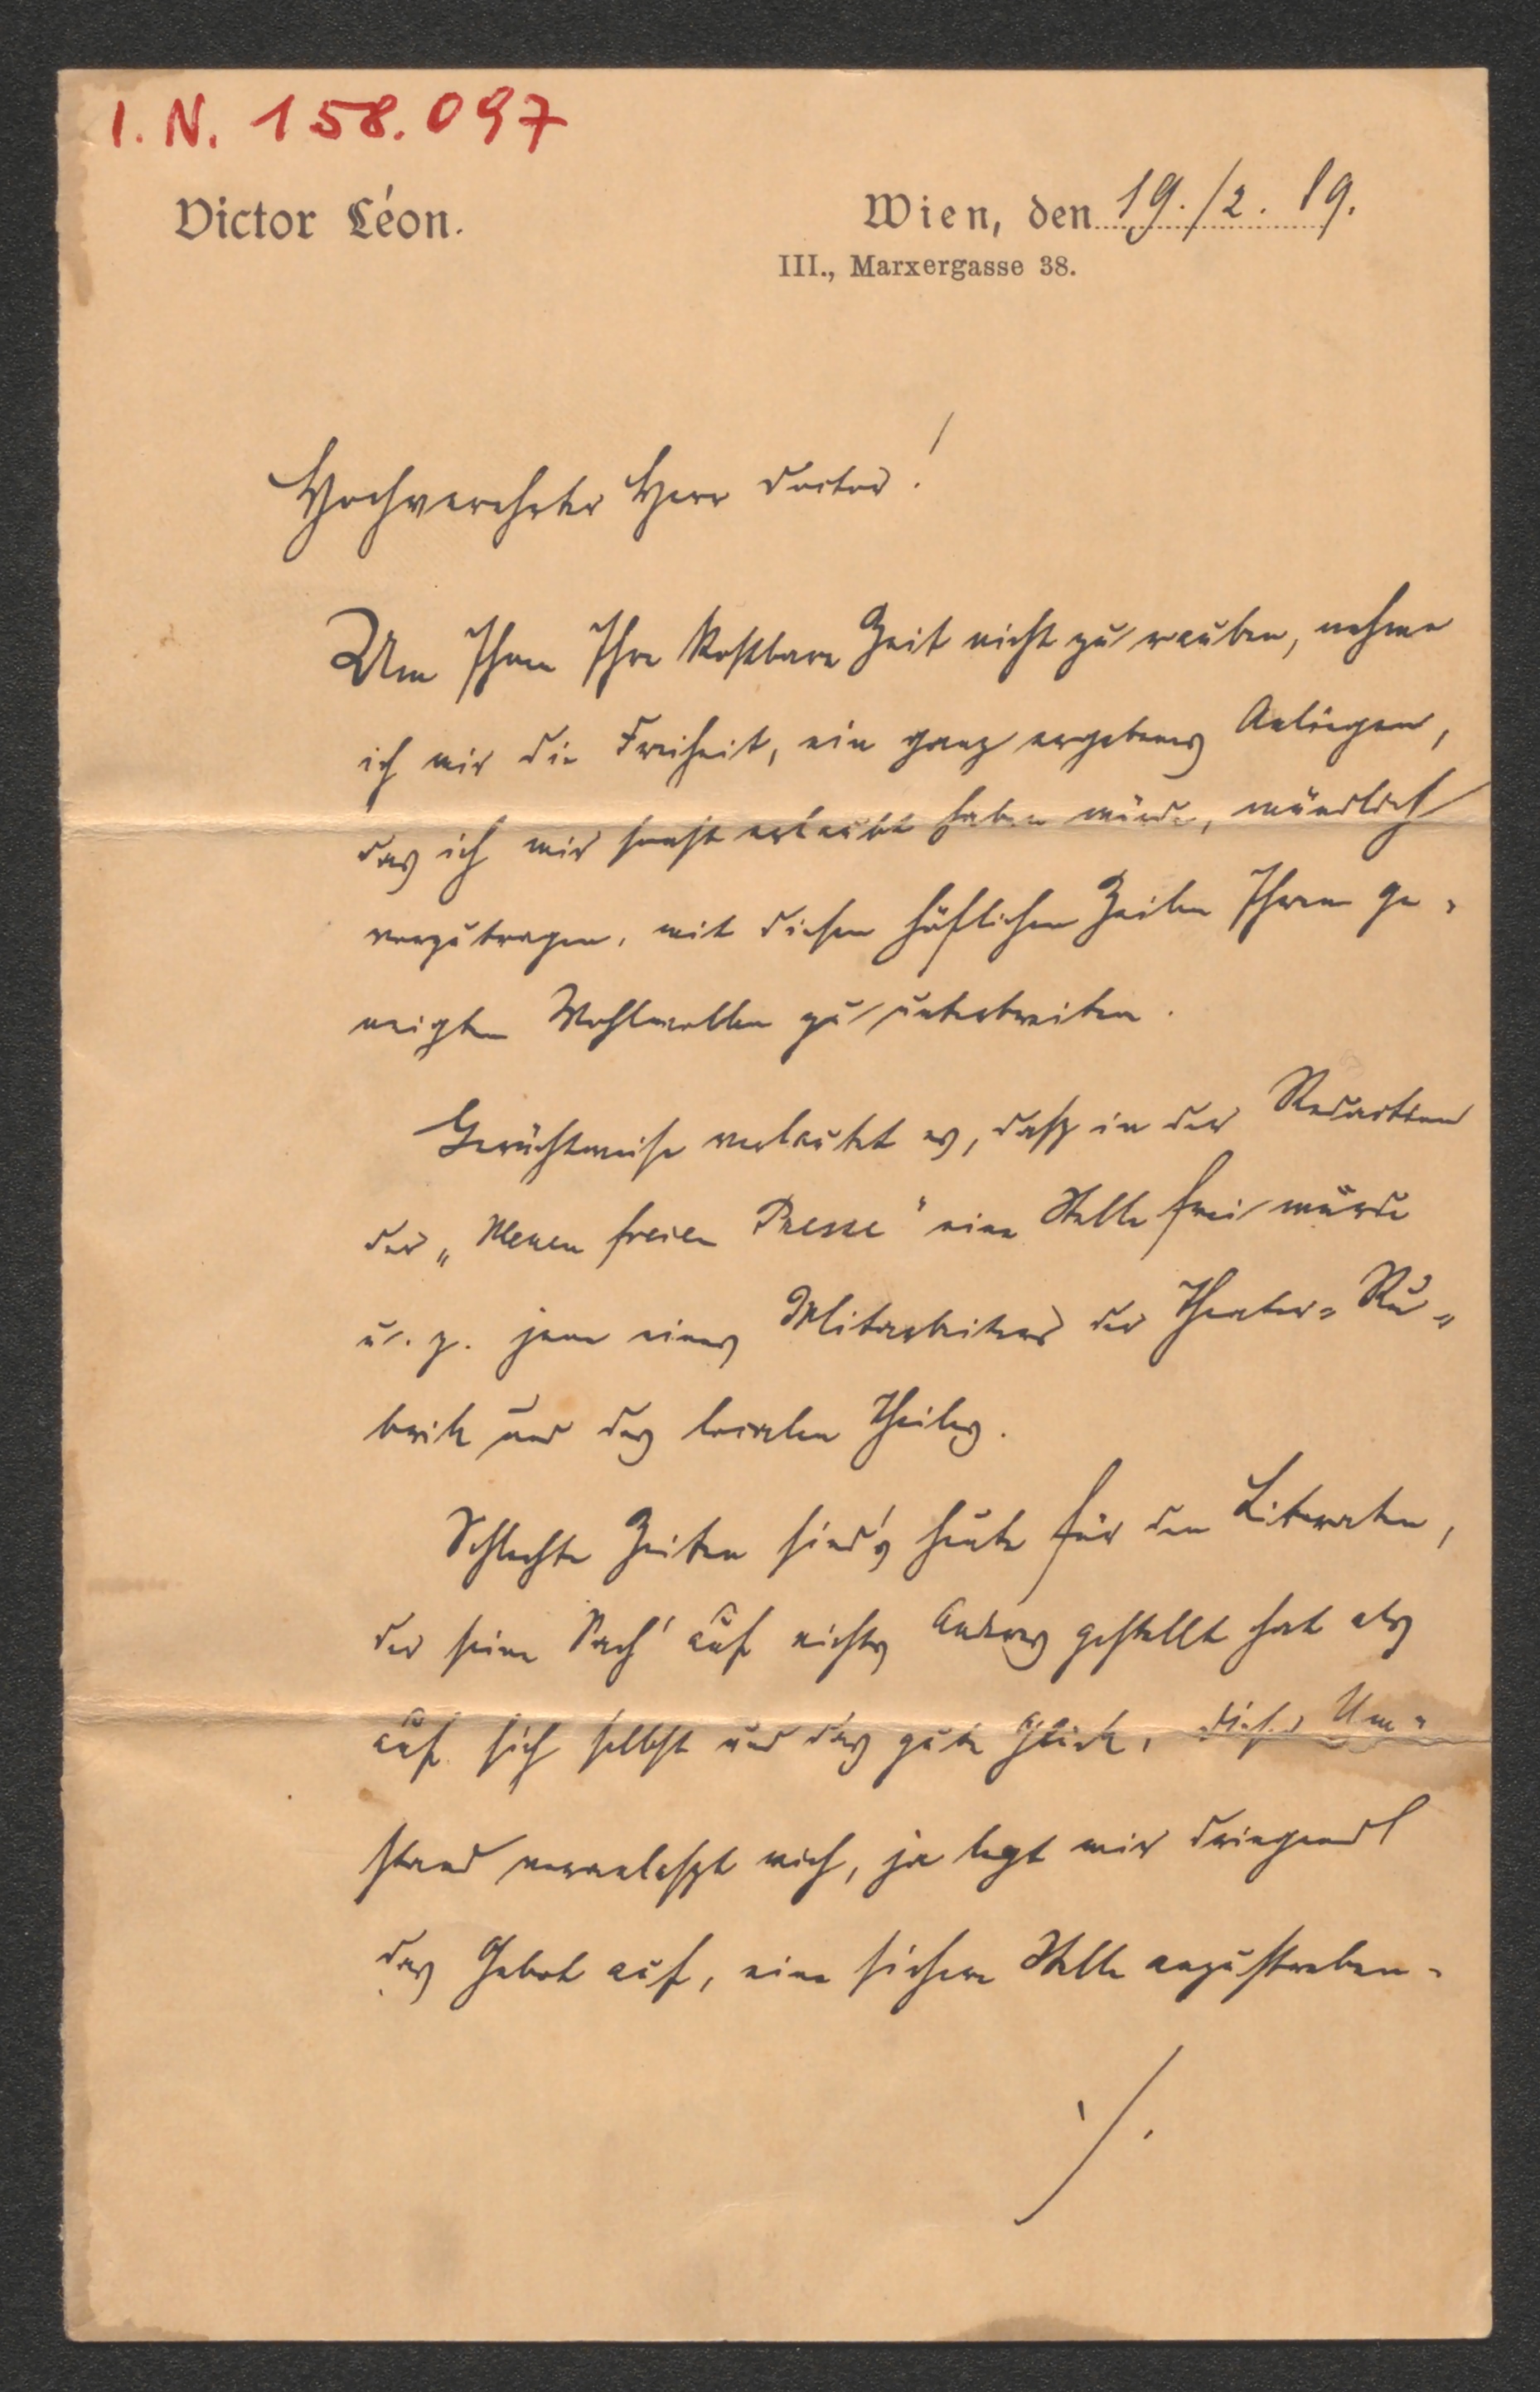 I. N. 158.097
Victor Léon.
Wien, den 19./2. 89.
III., Marxergasse 38.
Hochverehrter Herr Doctor!
Um Ihnen Ihre kostbare Zeit nicht zu rauben, nehme
ich mir die Freiheit, ein ganz ergebenes Anliegen,
das ich mir sonst erlaubt haben würde, mündlich
vorzutragen, mit diesen höflichen Zeilen Ihrem ge-
neigten Wohlwollen zu unterbreiten.
Gerüchtweise verlautet es, daß in der Redaction
der „Neuen freien Presse" eine Stelle frei würde
u. z. jene eines Mitarbeiters der Theater-Ru-
brik und des localen Theiles.
Schlechte Zeiten sind's heute für den Literaten,
der seine Sach' auf nichts Anderes gestellt hat als
auf sich selbst und das gute Glück, dieser Um-
stand veranlaßt mich, ja legt mir dringend
das Gebot auf, eine sichere Stelle anzustreben.
./.